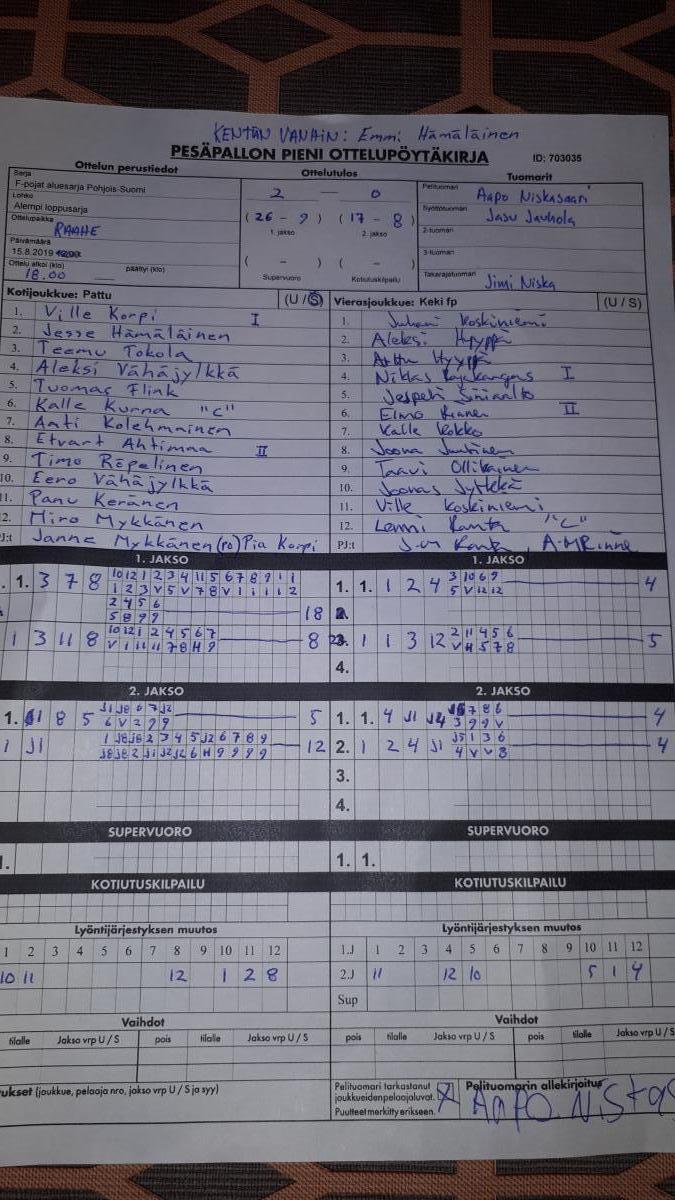 KENTÄN VANHIN: Emmi Hämäläinen
PESÄPALLON PIENI OTTELUPÖYTÄKIRJA ID: 703035
Ottelun perustiedot Ottelutulos Tuomarit
Sarja
F-pojat aluesarja Pohjois-Suomi
Lohko
Alempi loppusarja
Ottelupaikka
RAAHE
Päivämäärä
15.8.2019
Ottelu alkoi (klo) päättyi (klo)
18.00
2 — 0
( 26 - 9 ) ( 17 - 8 )
1. jakso 2. jakso
( - ) ( - )
Supervuoro Kotiutuskilpailu
Pelituomari Aapo Niskasaari
Syöttötuomari Jasu Jauhola
2-tuoman
3-tuoman
Takarajatuomari Jimi Niska
Kotijoukkue: Pattu (U / S)
1. Ville Korpi I
2. Jesse Hämäläinen
3. Teemu Tokola
4. Aleksi Vähäjylkkä
5. Tuomas Flink
6. Kalle Kurna "C"
7. Aati Kolehmainen
8. Etvart Ahtimna II
9. Timo Röpelinen
10. Eero Vähäjylkkä
11. Panu Keränen
12. Miro Mykkänen
PJ:t Janne Mykkänen (po) Pia Korpi
Vierasjoukkue: Keki fp (U / S)
1. Juhani Koskiniemi
2. Aleksi Hyyppä
3. Arttu Hyyppä
4. Niklas I
5. Jesperi Siniaalto
6. Elmo Rinne II
7. Kalle Kokko
8. Joona
9. Taavi Ollikainen
10. Joonas Jylkkä
11. Ville Koskiniemi
12. Lenni Ranta "C"
PJ:t A-MRinne
1. JAKSO
1. 3 7 8 10 12 1 2 3 4 11 5 6 7 8 9 1 1
1 2 3 V 5 V 7 8 V 1 1 1 1 2
2 4 5 6
5 8 9 9 18
1 3 11 8 10 12 1 2 4 5 6 7 8
V 1 11 11 7 8 H 9
1. JAKSO
1. 1. 1 2 4 3 10 6 9 4
5 V 12 12
1 1 3 12 2 11 4 5 6 5
V H 5 7 8
4.
2. JAKSO
1. 8 5 J1 J8 6 7 J2 5
6 V 2 9 9
1 J1 1 J8 J8 2 3 4 5 J2 6 7 8 9 12
J8 J8 2 J1 J2 J2 6 H 9 9 9 9
2. JAKSO
1. 1. 4 J1 J4 7 8 6 4
3 9 9 V
2. 1 2 4 J1 J5 1 3 6 4
4 V V 8
3.
4.
SUPERVUORO
1.
SUPERVUORO
1. 1.
KOTIUTUSKILPAILU
KOTIUTUSKILPAILU
Lyöntijärjestyksen muutos
1 2 3 4 5 6 7 8 9 10 11 12
10 11 12 1 2 8
Lyöntijärjestyksen muutos
1.J 1 2 3 4 5 6 7 8 9 10 11 12
2.J 11 12 10 5 1 4
Sup
Vaihdot
tilalle Jakso vrp U / S pois tilalle Jakso vrp U / S
Vaihdot
pois tilalle Jakso vrp U / S pois tilalle Jakso vrp U / S
ukset (joukkue, pelaaja nro, jakso vrp U / S ja syy)
Pelituomari tarkastanut
joukkueidenpelaajaluvat.
Puutteet merkitty erikseen.
Pelituomarin allekirjoitus